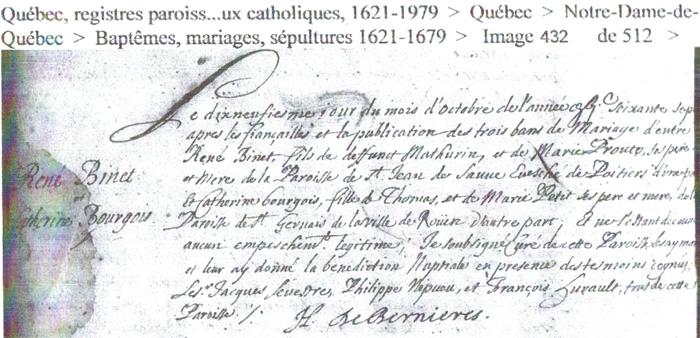 Québec, registres paroiss...ux catholiques, 1621-1979 > Québec > Notre-Dame-de-
Québec > Baptêmes, mariages, sépultures 1621-1679 > Image 432 de 512 >
Le dixneufiesme jour du mois d'Octobre de l'année Soixante sept
apres les fiançailles et la publication des trois bans de Mariage d'entre
René Binet, fils de deffunct Mathurin, et de Marie Proute, ses pere
et mere de la Paroisse de St Jean de Sauue Euesché de Poitiers d'une part
Et Catherine bourgois, fille de Thomas, et de Marie Petit ses pere et mere, de la
Paroisse de St Geruais de la ville de Roüen d'autre part, Et ne s'estant
aucun empeschemt legitime, Je soubsigné Curé de cette Paroisse les ay
et leur ay donné la benediction Nuptiale en presence des tesmoins
Jacques Seuestre, Philippe et François trois de cette
Paroisse /.
René Binet
Catherine Bourgois
H. de Bernieres.